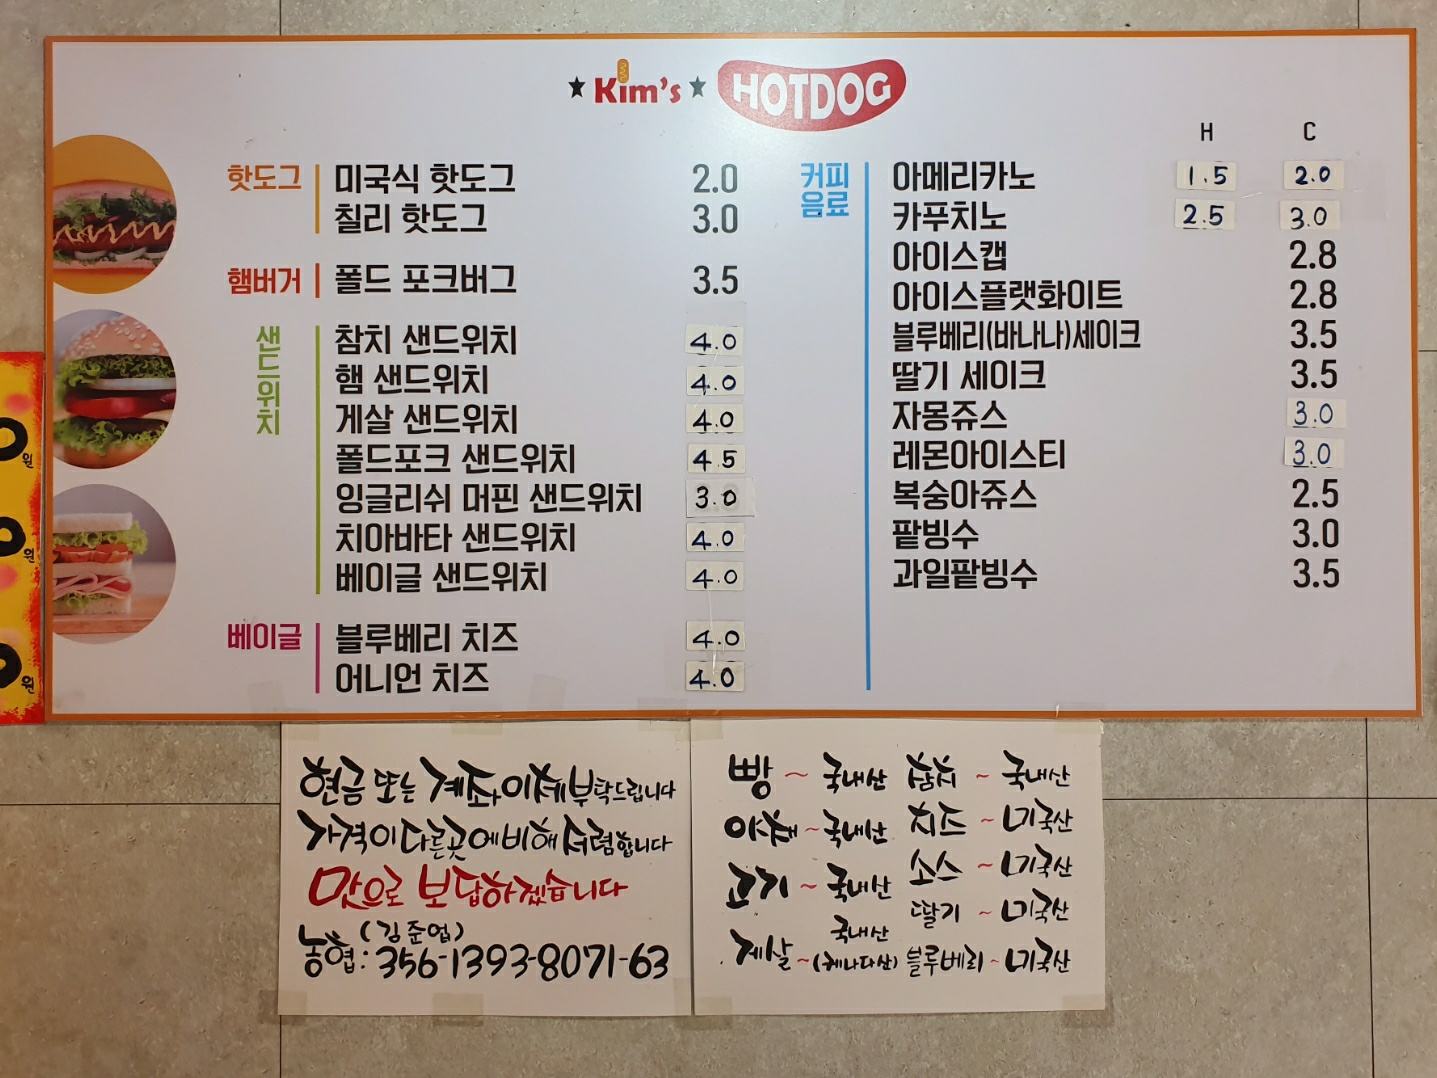 Kim's HOTDOG
핫도그
미국식 핫도그 2.0
칠리 핫도그 3.0
햄버거
폴드 포크버그 3.5
샌드위치
참치 샌드위치 4.0
햄 샌드위치 4.0
게살 샌드위치 4.0
폴드포크 샌드위치 4.5
잉글리쉬 머핀 샌드위치 3.0
치아바타 샌드위치 4.0
베이글 샌드위치 4.0
베이글
블루베리 치즈 4.0
어니언 치즈 4.0
커피
음료
H C
아메리카노 1.5 2.0
카푸치노 2.5 3.0
아이스캡 2.8
아이스플랫화이트 2.8
블루베리(바나나)세이크 3.5
딸기 세이크 3.5
자몽쥬스 3.0
레몬아이스티 3.0
복숭아쥬스 2.5
팥빙수 3.0
과일팥빙수 3.5
0원
0원
0원
현금 또는 계좌이체부탁드립니다
가격이다른곳에비해저렴합니다
맛으로 보답하겠습니다
(김준업)
농협: 356-1393-8071-63
빵 ~ 국내산 참치 ~ 국내산
야채 ~ 국내산 치즈 ~ 미국산
고기 ~ 국내산 소스 ~ 미국산
딸기 ~ 미국산
게살 ~ 국내산 (캐나다산) 블루베리 ~ 미국산